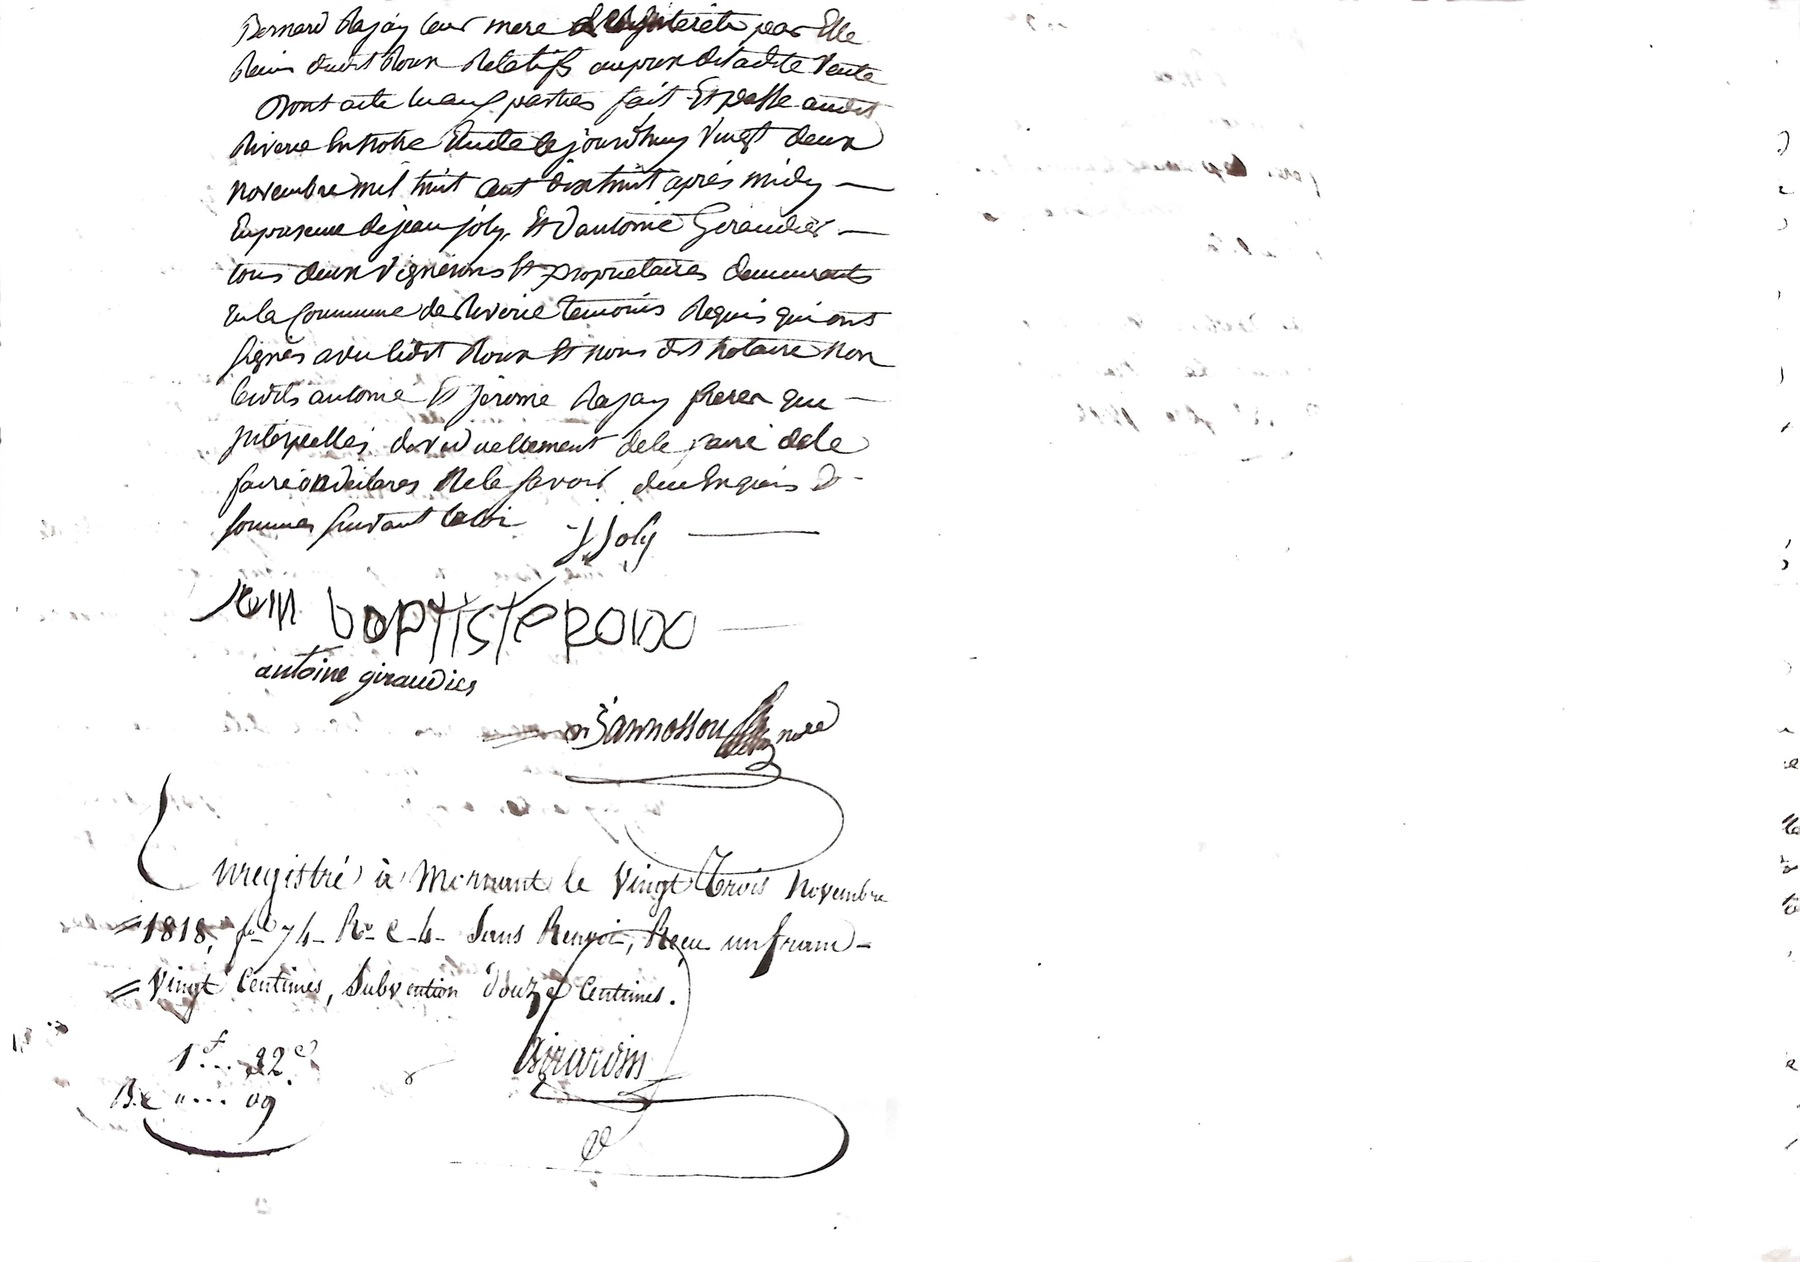 Bernard Rajay leur mere d'interets par Elle
Recus dudit Roux Relatifs au prix de ladite Vente
Dont acte lu aux parties fait Et passé audit
Riverie En notre Etude Ce jourdhuy Vingt deux
novembre mil huit Cent dix huit après midy
En presence de jean joly, Et d'antoine Giraudier
tous deux Vignerons Et proprietaires demeurants
En la Commune de Riverie temoins Requis qui ont
signés avec ledit Roux Et nous dit notaire Non
lesdits antoine Et jérome Rajay freres qui
interpellés de le faire de le
faire ont déclarés Ne le savoir de ce Enquis Et
sommés suivant la loi J Joly
Jean baptiste roux
antoine giraudier
nore
Enregistré à Mornant le Vingt Trois Novembre
1818, fo 74 Ro C 4 Sans Renvoi, Reçu un franc
Vingt Centimes, Subvention douze Centimes.
1f... 32c
B.e "... 09